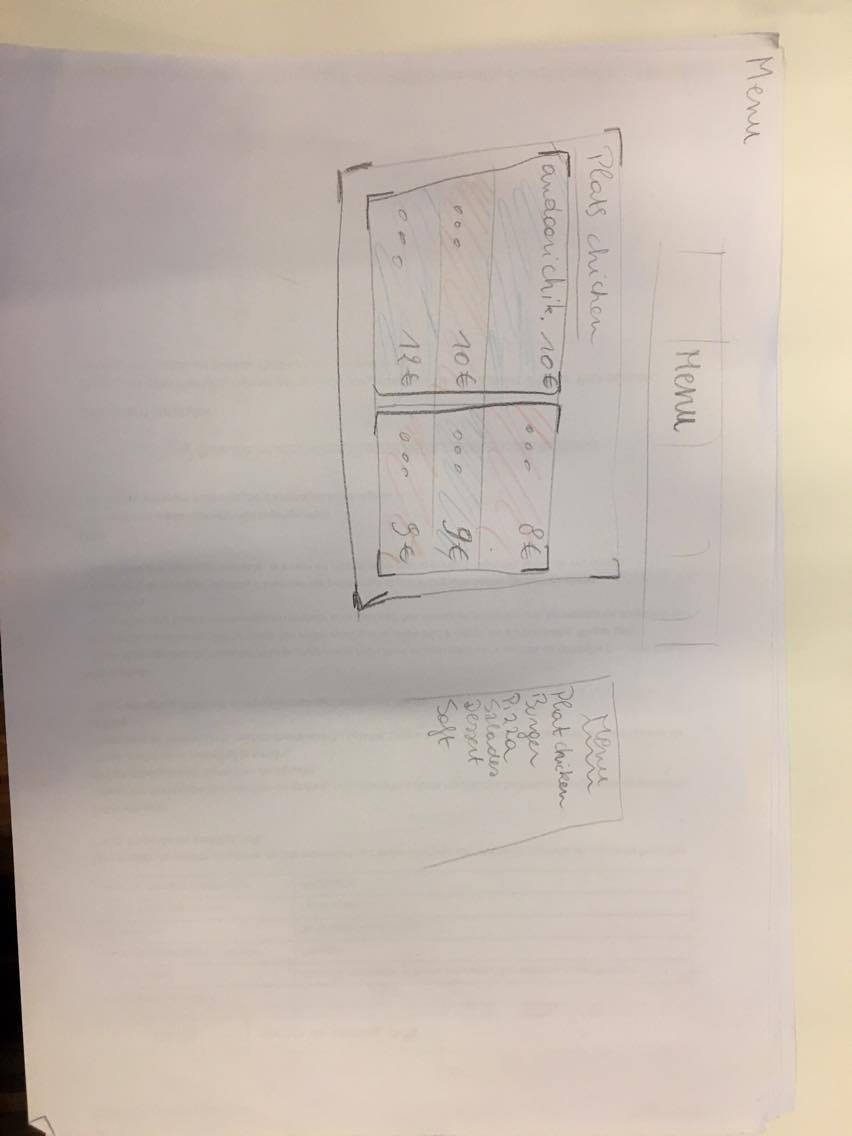 Menu
Menu
Plats chicken
Tandoori chik. 10€
... 8€
... 10€
... 9€
... 12€
... 9€
Menu
Plat chicken
Burger
Pizza
Salades
Dessert
Soft